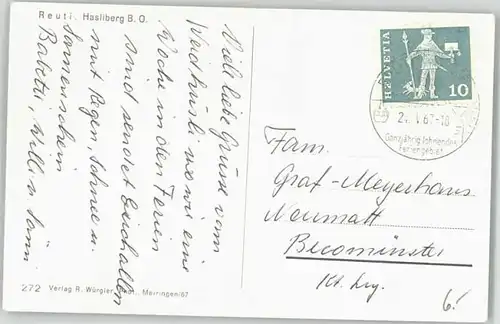 Reuti. Hasliberg B.O.
Viele liebe Grüsse vom
wo wir eine
Woche in den Ferien
sind sendet Euch allen
mit Regen, Schnee u.
Sonnenschein
Babeli, Willi u.
272 Verlag R. Würgler, Meiringen/67
HELVETIA
10
Ganzjährig lohnendes
Feriengebiet
Fam.
Graf-Meyerhans
Neumatt
Beromünster
Kt. Luz.
6.-